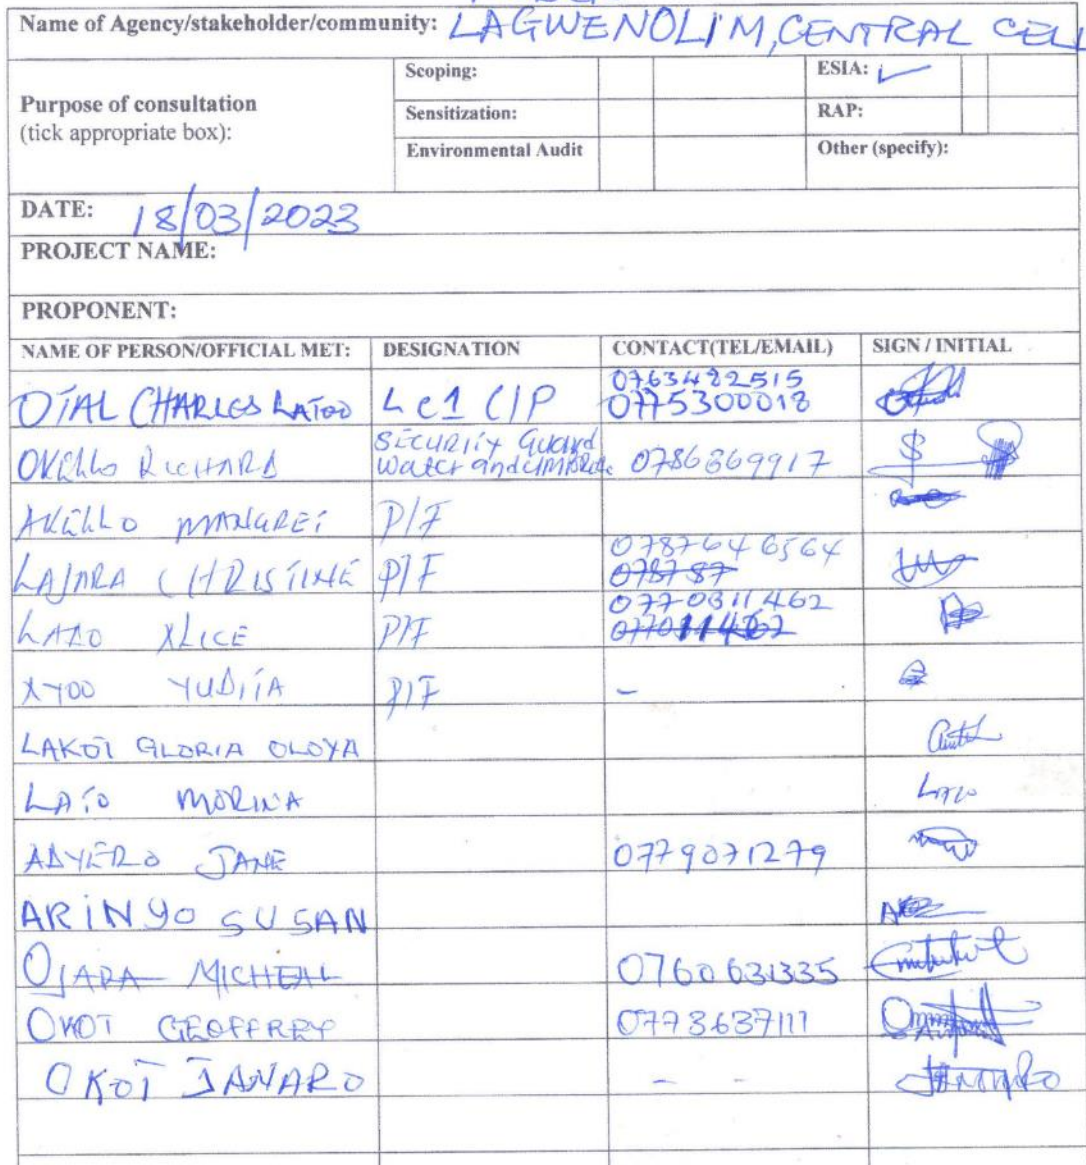 Name of Agency/stakeholder/community: LAGWENOLIM, CENTRAL CELL
Purpose of consultation
(tick appropriate box):
Scoping:
ESIA: ✓
Sensitization:
RAP:
Environmental Audit
Other (specify):
DATE: 18/03/2023
PROJECT NAME:
PROPONENT:
NAME OF PERSON/OFFICIAL MET: DESIGNATION CONTACT(TEL/EMAIL) SIGN / INITIAL
0763482515
OTAL CHARLES LATOO LC1 C/P 0775300018
SECURITY Guard
OKELLO RICHARD Water and 0786869917
AKELLO MANGRET P/F
0787646564
LAJARA CHRISTINE P/F 078787
0770311462
LATO ALICE P/F
AYOO YUDITA P/F -
LAKOT GLORIA OLOYA
LATO MORINA
ADYERO JANE 0779071279
ARINYO SUSAN
OJARA MICHEAL 0760631335
OKOT GEOFFREY 0773637111
OKOT JANARO - -